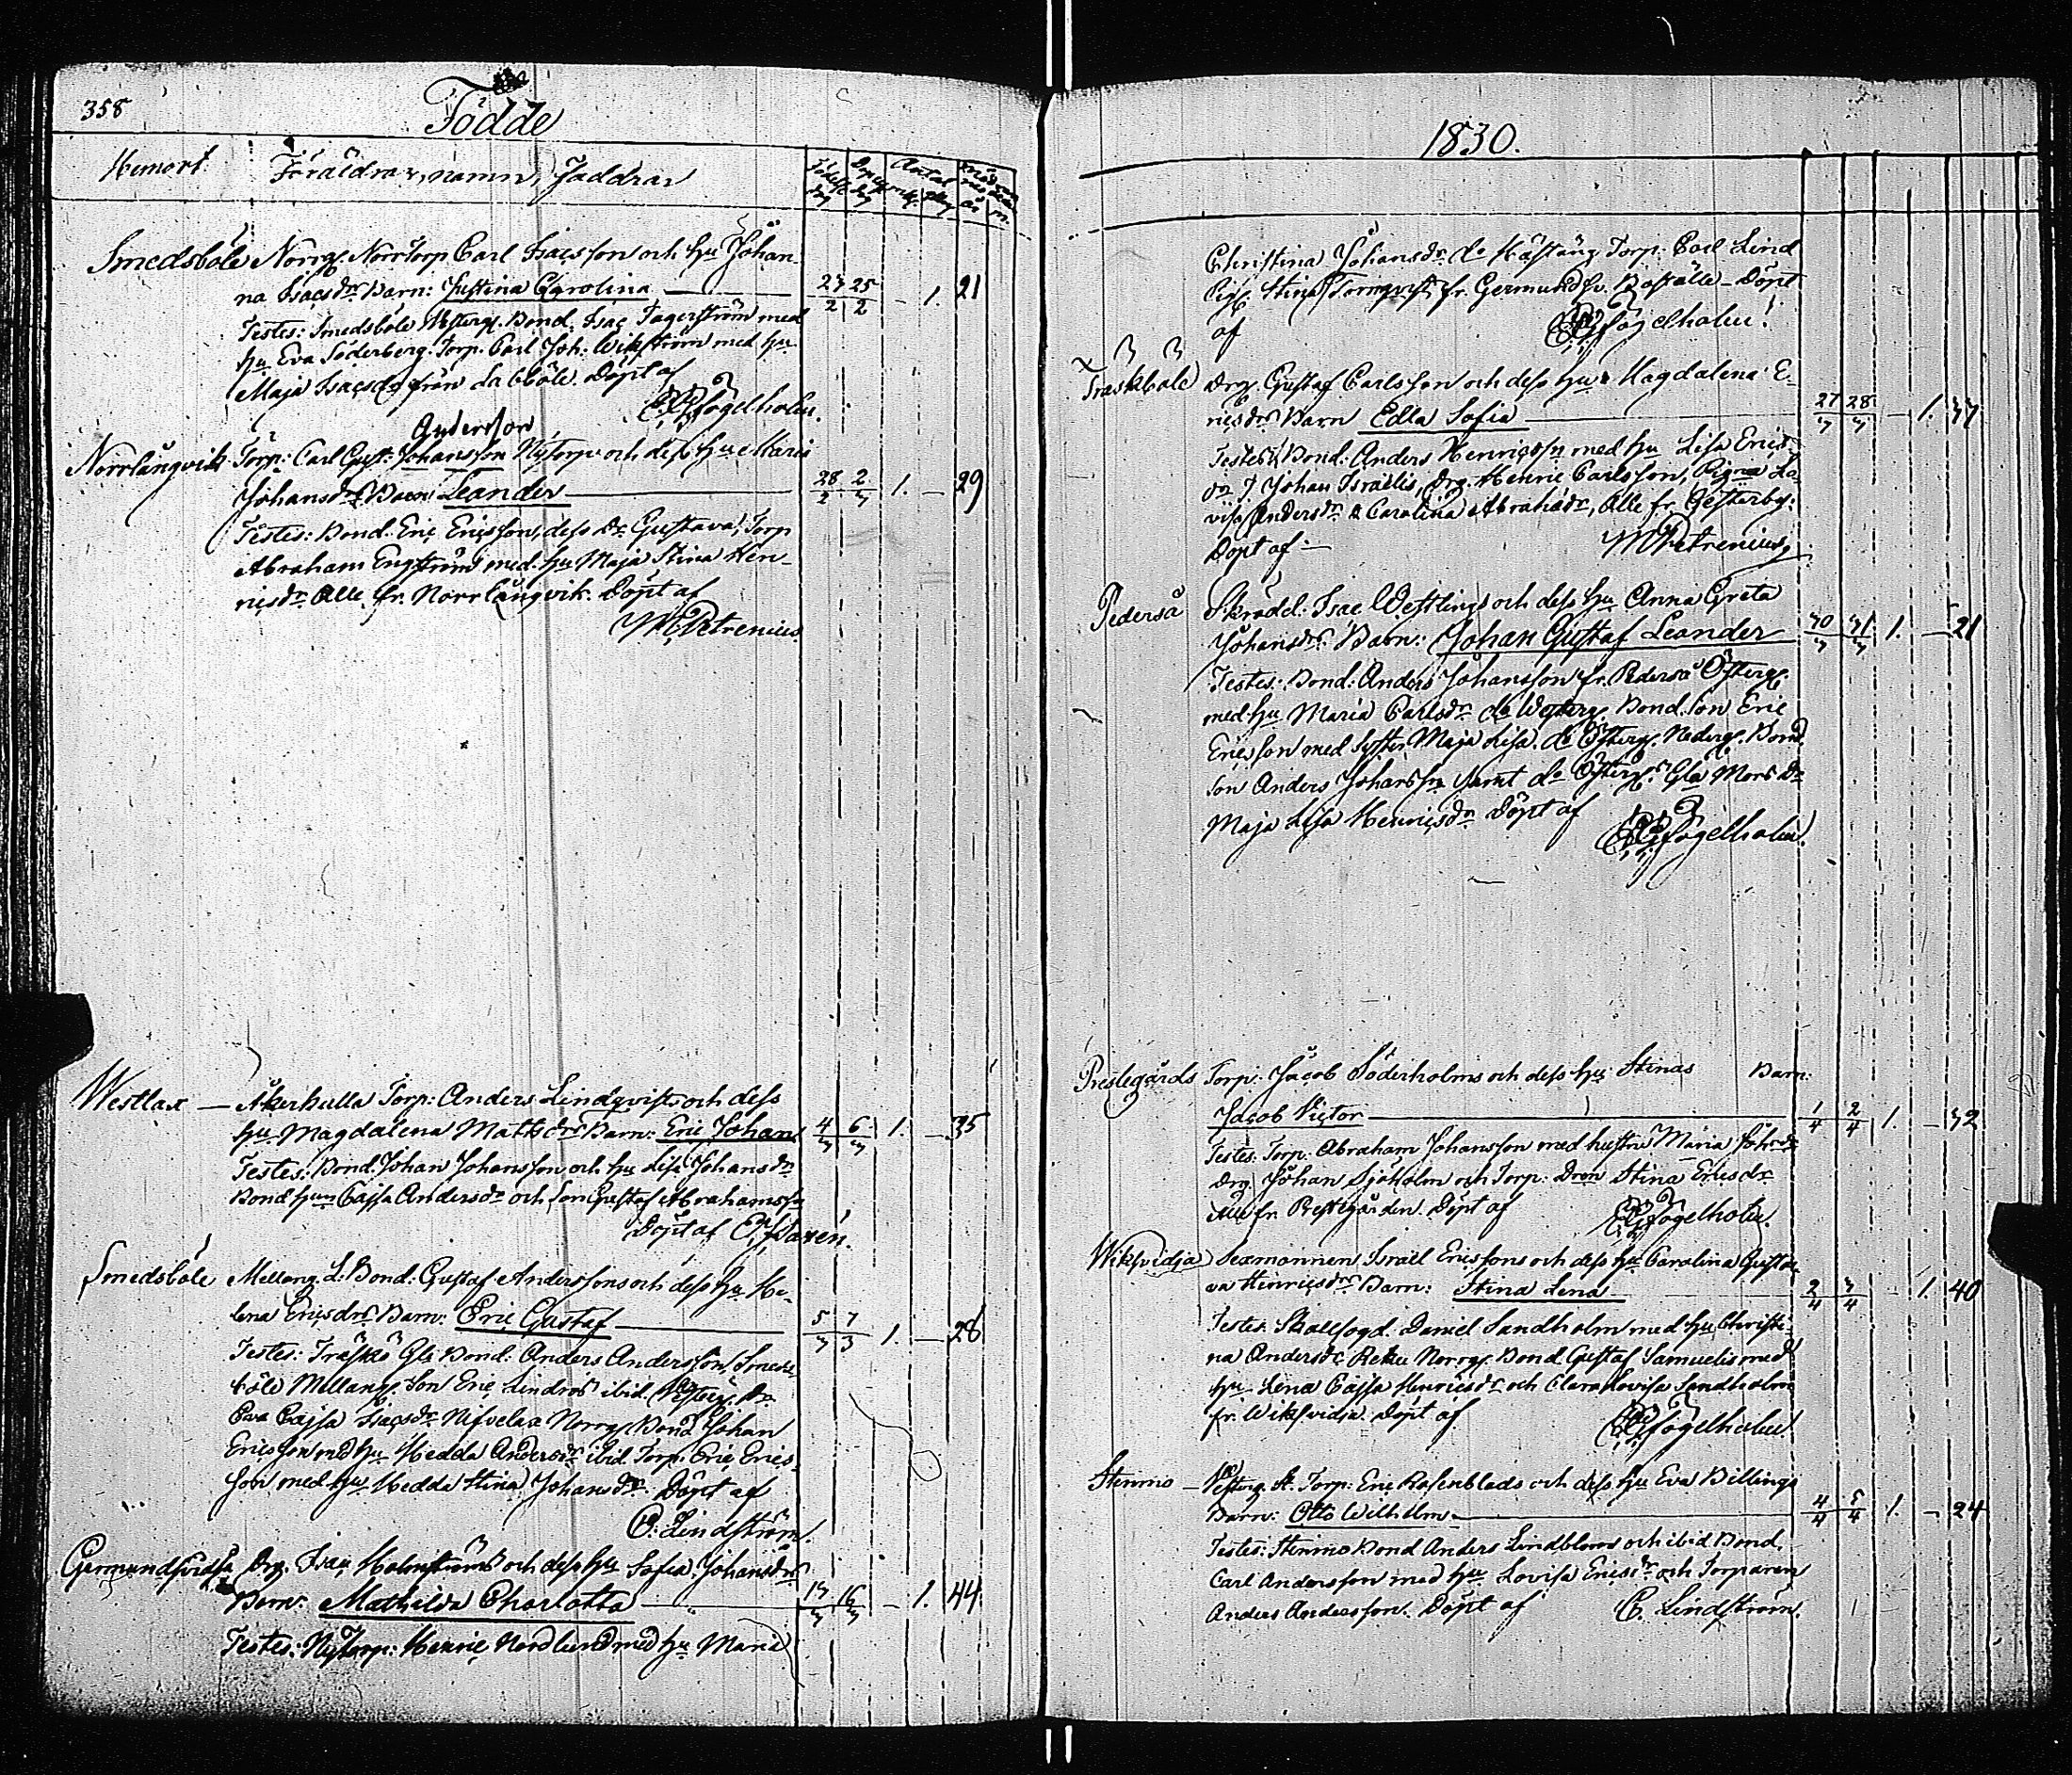 358
Födde
Hemort. Föräldrar, namn, Faddrar
Smedsböle Norrg. Norrtorp Carl Isacsson och hu Johan-
na Isacsdrs Barn: Justina Carolina 23 25 – 1. 21
2 2
Testes: Smedsböle Westerg. Bond. Isac Fagerström med
hu Eva Söderberg. Torp. Carl Joh: Wikström med hu
Maja Isacsdr från Döpt af
Fogelholm.
Andersson
Norrlångvik Torp: Carl Gust: Johansson Nytorp och dess hu Maria
Johansdrs Barn: Leander 28 2 1. – 29
2 3
Testes: Bond. Eric Ericsson, dess Dr Gustava, Torp
Abraham Engström med hu Maja Stina Hen-
ricsdr. Alle fr. Norrlångvik. Döpt af
Petrenius.
Westlax — Åkerhulla Torp: Anders Lindqvists och dess
hu Magdalena Matts drs Barn: Eric Johan 4 6 1. – 35
3 3
Testes: Bond. Johan Johansson och hu Lisa Johansdr
Bond hun Cajsa Andersdr och son Gustaf Abrahamsson
Döpt af
Smedsböle Mellang. L. Bond: Gustaf Anderssons och dess hu He-
lena Ericsdrs Barn: Eric Gustaf 5 7 1. – 28
3 3
Testes: Träskö Gla Bond: Anders Andersson, Smeds-
böle Mellang. Son Eric Lindros ibid. Westerg. Dr
Eva Cajsa Isacsdr Nifvelax Norrg. Bond. Johan
Ericsson med hu Hedda Andersdr ibid. Torp. Eric Erics-
son med hu Hedda Stina Johansdr. Döpt af
C. Lindström.
Germundsvidja Drg. Isac Holmströms och dess hu Sofia Johansdrs
Barn: Mathilda Charlotta 13 16 – 1. 44
3 3
Testes: Nytorp: Henric Nordlund med hu Maria
1830.
Christina Johansdr. do Hästäng Torp. Carl Lind
Pig. Stina Törnqvist fr. Germundsv. Boställe – Döpt
af Fogelholm.
Träskböle Drg. Gustaf Carlsson och dess hu Magdalena E-
ricsdrs Barn Edla Sofia 27 28 – 1. 37
3 3
Testes: Bond: Anders Henricsson med hu Lisa Erics-
dr. Johan Israelis, Drg. Henric Carlsson, Pigna Lo-
visa Andersdr & Carolina Abrahsdr, Alle fr. Gesterby.
Döpt af — Petrenius
Pederså Skrädd: Isac Westlings och dess hu Anna Greta
Johansdrs Barn: Johan Gustaf Leander 30 31 1. – 21
3 3
Testes: Bond: Anders Johansson fr. Pederså Österg.
med hu Maria Carlsdr do Westerg. Bond. Son Eric
Ericsson med syster Maja Lisa. do Österg. Nederg. Bond.
Son Anders Johansson samt do Österg. Gla Mors Dr
Maja Lisa Henricsdr Döpt af
Fogelholm.
Prestegårds Torp: Jacob Söderholms och dess hu Stinas Barn:
Jacob Victor 1 2 1. – 32
4 4
Testes: Torp: Abraham Johansson med hustru Maria Johsdr
Drg. Johan Sjöholm och Torp: Dron Stina Ericsdr
Alle fr. Prestegården. Döpt af Fogelholm.
Wiksvidja Sexmannen Israel Ericssons och dess hu Carolina Gusta-
va Henricsdrs Barn: Stina Lena 2 3 – 1. 40
4 4
Testes: Skallfogd. Daniel Sandholm med hu Christi-
na Andersdr, Norrg. Bond Gustaf Samuelis med
hu Lena Cajsa Henricsdr och Clara Lovisa Sandholm
fr. Wiksvidja. Döpt af Fogelholm.
Stenmo — Westerg. St. Torp: Eric Rosenblads och dess hu Eva Billings
Barn: Otto Wilhelm 4 5 1. – 24
4 4
Testes: Stenmo Bond Anders Lindblom och ibid. Bond.
Carl Andersson med hu Lovisa Ericsdr och Torparen
Anders Andersson. Döpt af C. Lindström.